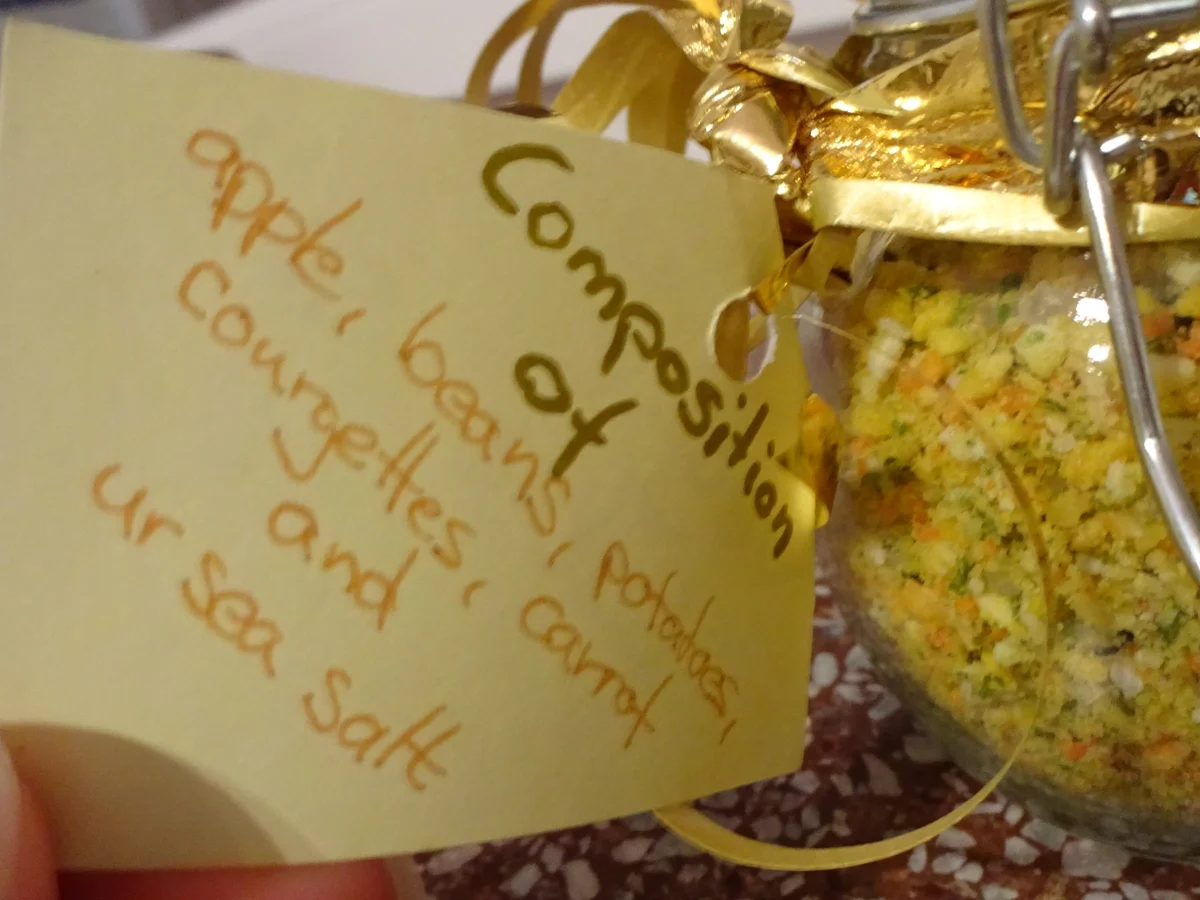 Composition
of
apple, beans, potatoes,
courgettes, carrot
and
ur sea salt